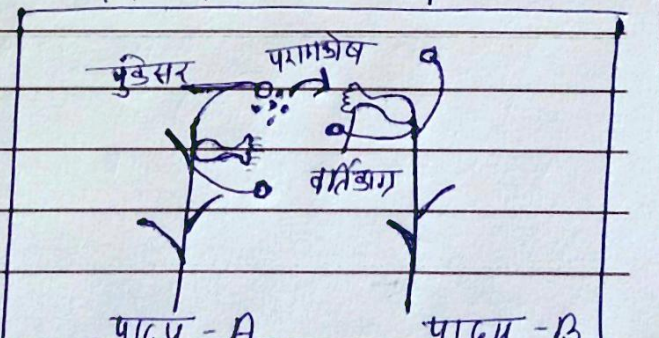 पुंकेसर
परागकोष
वर्तिकाग्र
पादप - A
पादप - B